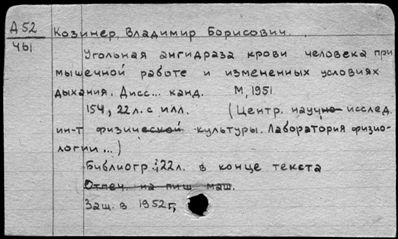 А52 Козинер, Владимир Борисович...
Ч61 Угольная ангидраза крови человека при
мышечной работе и измененных условиях
дыхания. Дисс... канд. М, 1951.
154, 22 л. с илл. (Центр. научно исслед.
ин-т физической культуры. Лаборатория физио-
логии...)
Библиогр.: 22л. в конце текста
Отпеч. на пиш. маш.
Защ. в 1952г,